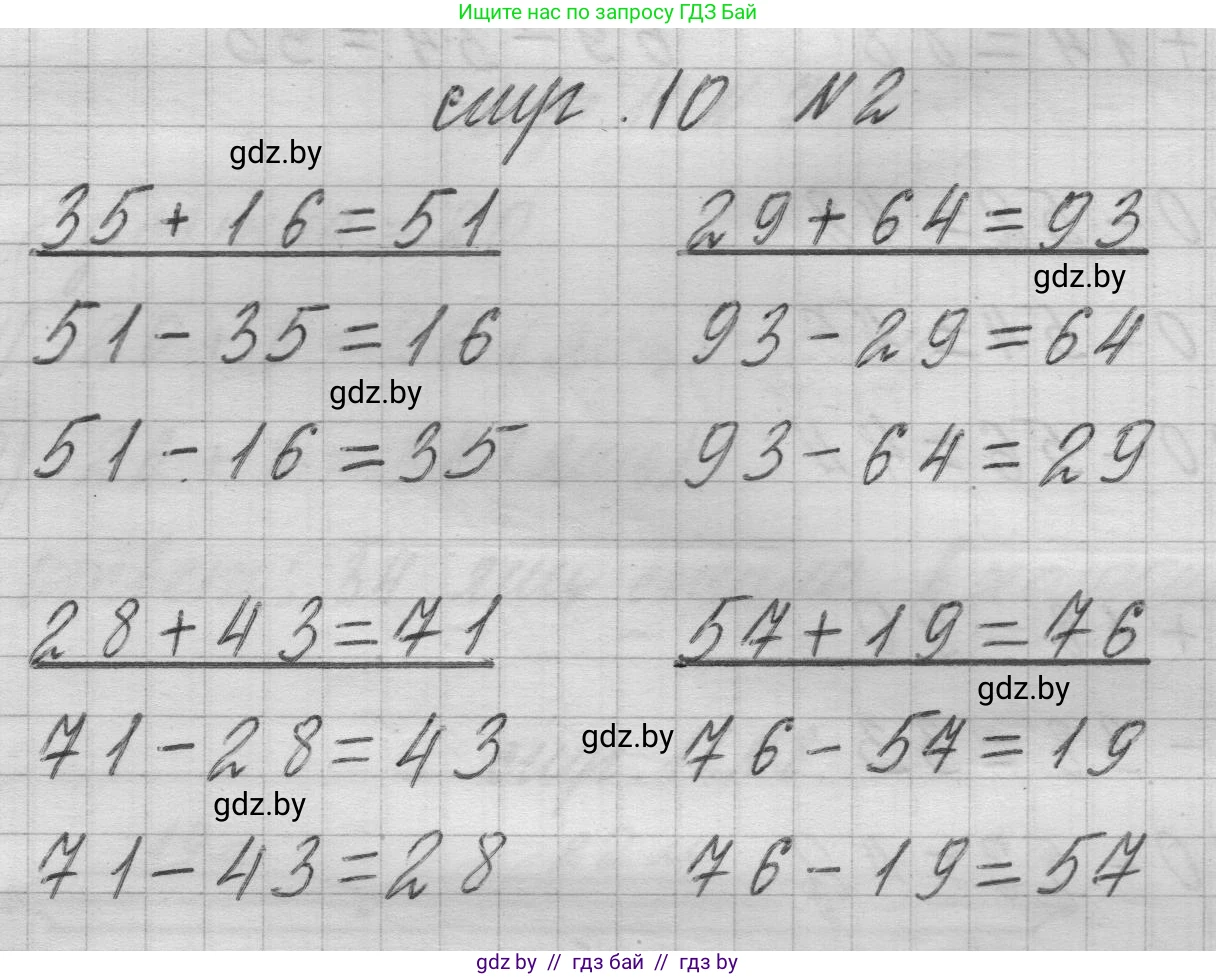 Ищите нас по запросу ГДЗ Бай
стр. 10 №2
gdz.by
35 + 16 = 51 29 + 64 = 93
gdz.by
51 - 35 = 16 93 - 29 = 64
gdz.by
51 - 16 = 35 93 - 64 = 29
28 + 43 = 71 57 + 19 = 76
gdz.by
71 - 28 = 43 gdz.by 76 - 57 = 19
gdz.by
71 - 43 = 28 76 - 19 = 57
gdz by // гдз бай // гдз by